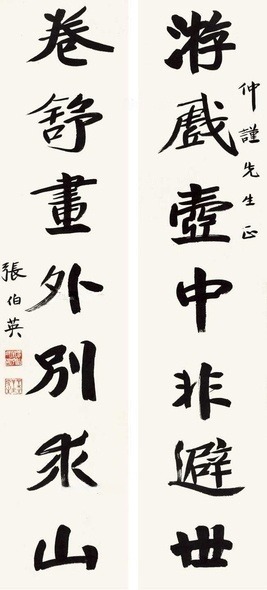 仲謹先生正
游戲壺中非避世
卷舒畫外別求山
張伯英